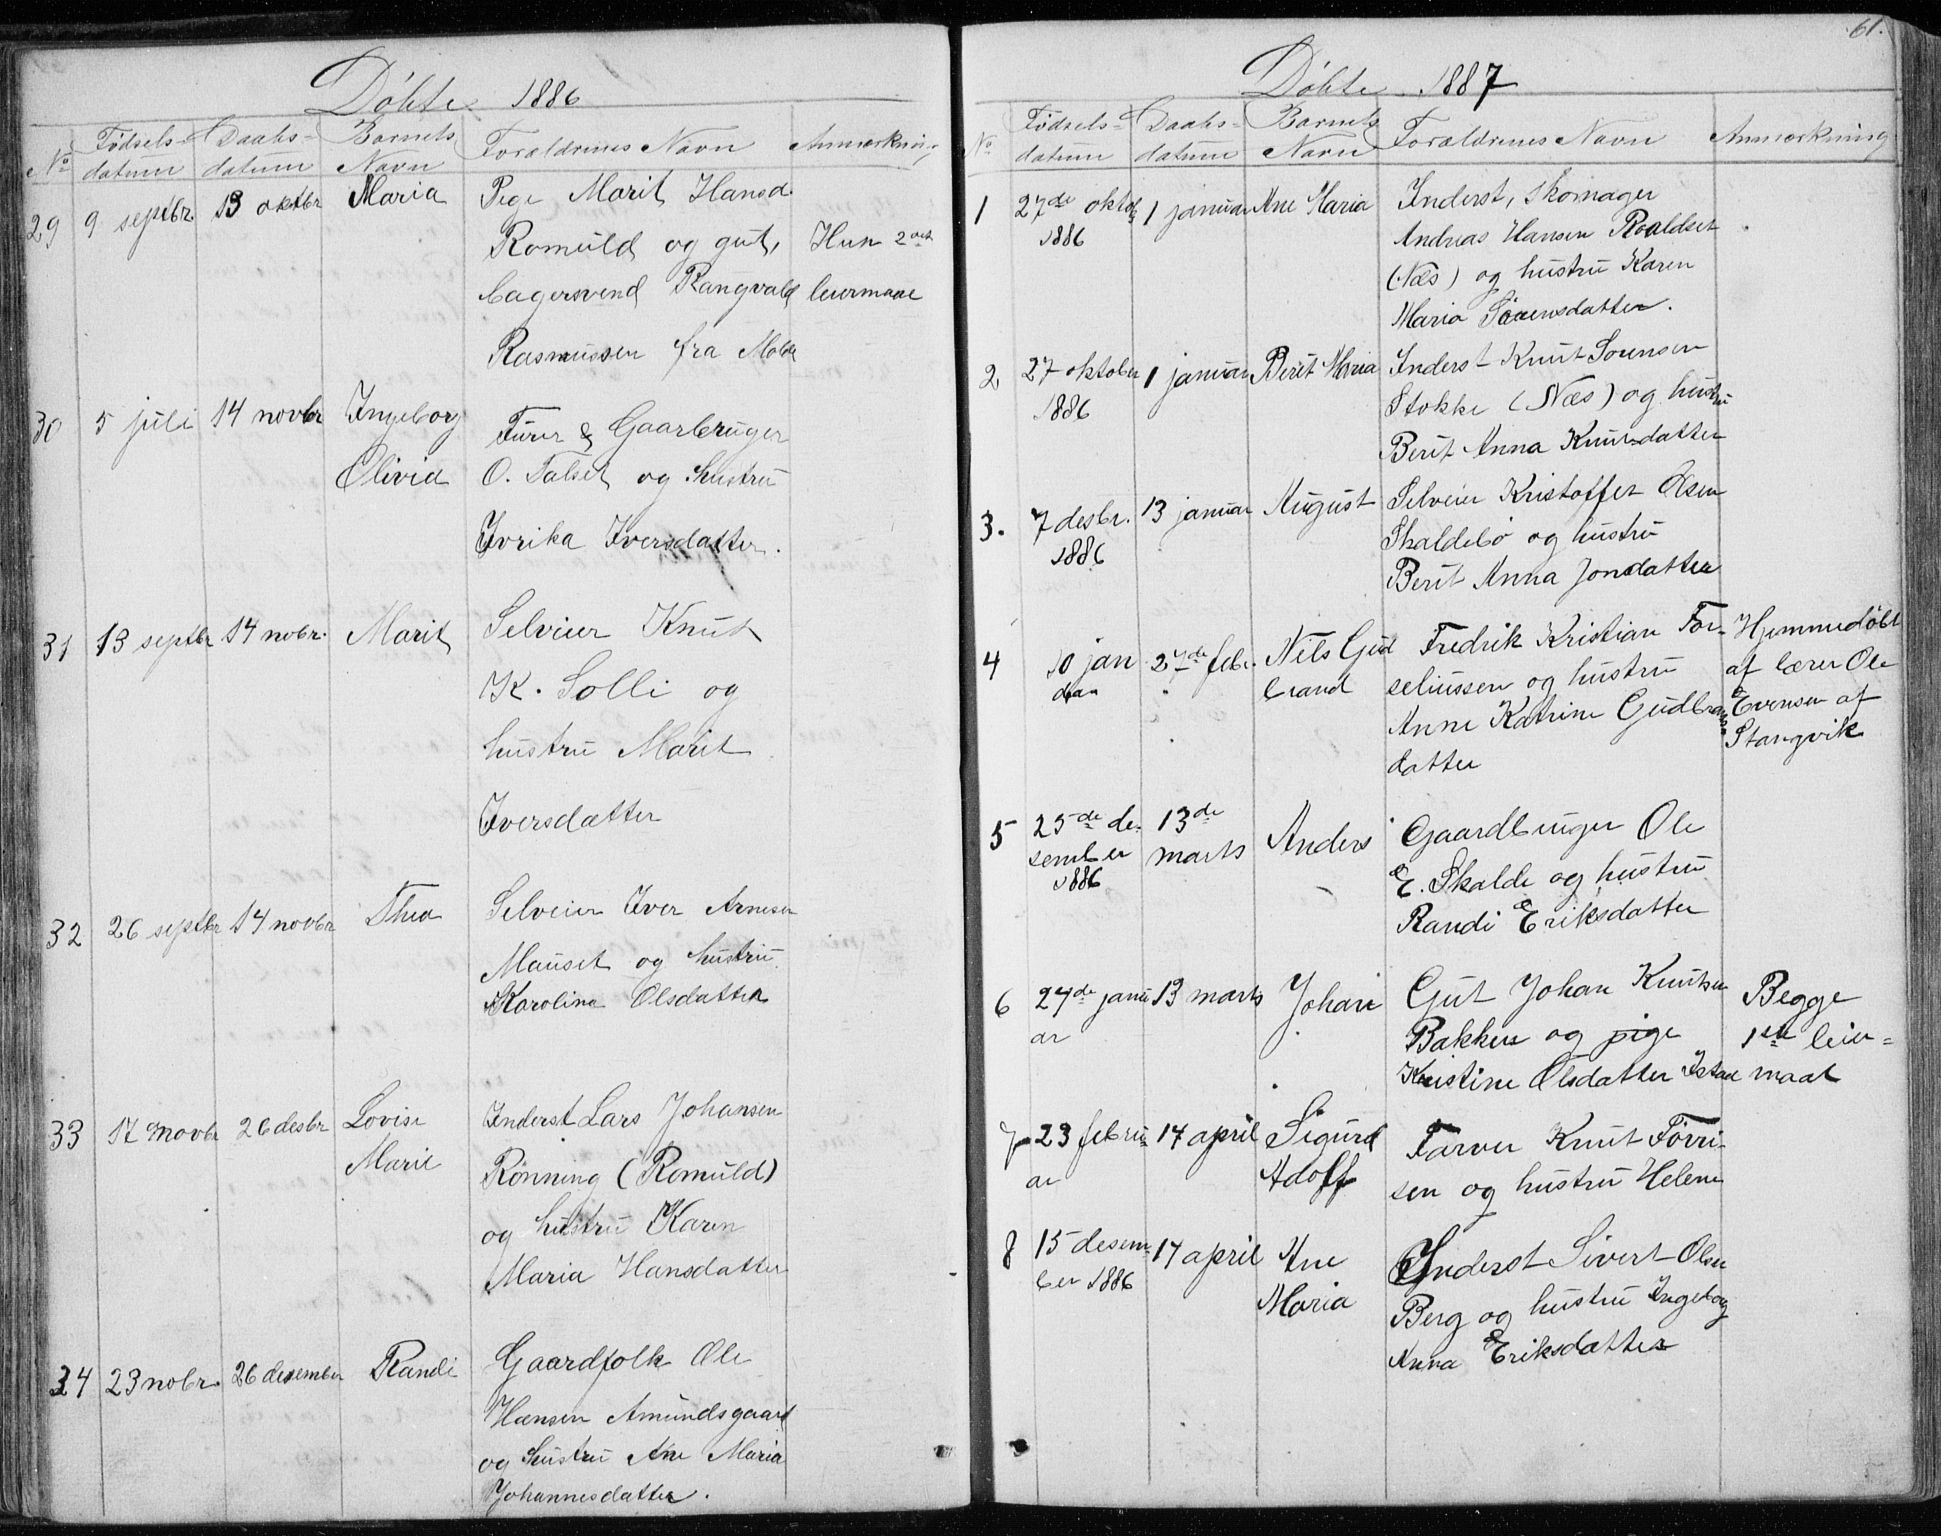 Döbte 1886
No Födsels-datum Daabs-datum Barnets Navn Foraldrenes Navn Anmærkning
29 9 septbr. 13 oktbr Maria Pege Marit Hansd.
Romuld og gut, Hun 2det
bagersvend Rangvald leiermaal
Rasmussen fra Molde
30 5 juli 14 novbr Ingeborg Furer & Gaarbruger
Olivia O. Talset og hustru
Ivrika Iversdatter.
31 13 septbr 14 nobr. Marit Selveier Knut
K. Solli og
hustru Marit
Iversdatter
32 26 septbr 14 novbr Thea Selveier Iver Arnesen
Mauset og hustru
Karolina Olsdatter
33 17 novbr 26 desbr Lovise Inderst Lars Johansen
Marie Rønning (Romuld)
og hustru Karen
Maria Hansdatter
34 23 nobr. 26 desember Randi Gaardfolk Ole
Hansen Amundsgaard
og hustru Ane Maria
Johannesdatter.
61.
Döbte 1887
No Fødsels-datum Daabs-datum Barnets Navn Foraldrenes Navn Anmærkning
1 27de oktob 1 januar Ane Maria Inderst, skomager
1886 Andreas Hansen Roaldset
(Næs) og hustru Karen
Maria Sörensdatter.
2 27 oktober 1 januar Berit Maria Inderst Knut Sorensen
1886 Stokke (Næs) og hustru
Berit Anna Knutsdatter
3. 7 desbr. 13 januar August Selveier Kristoffer Olsen
1886 Skaldebö og hustru
Berit Anna Jonsdatter
4 10 jan 27de febr. Nils Gud Fredrik Kristian Tor- Hjemmedöbt
brand seliussen og hustru af lærer Ole
Anne Katrine Gudbrands Evensen af
datter Stangvik
5 25de de- 13de Anders Gaardbruger Ole
sember marts E. Skalde og hustru
1886 Randi Eriksdatter
6 27de janu 13 marts Johan Gut Johan Knutsen Begge
ar Bakken og pige 1ste leier-
Kristine Olsdatter Istad maal
7 23 febru 14 april Sigurd Farver Knut Förri-
ar Adolf sen og hustru Helene
8 15 desem 17 april Ane Inderst Sivert Olsen
ber 1886 Maria Berg og hustru Ingeborg
Anna Eriksdatter